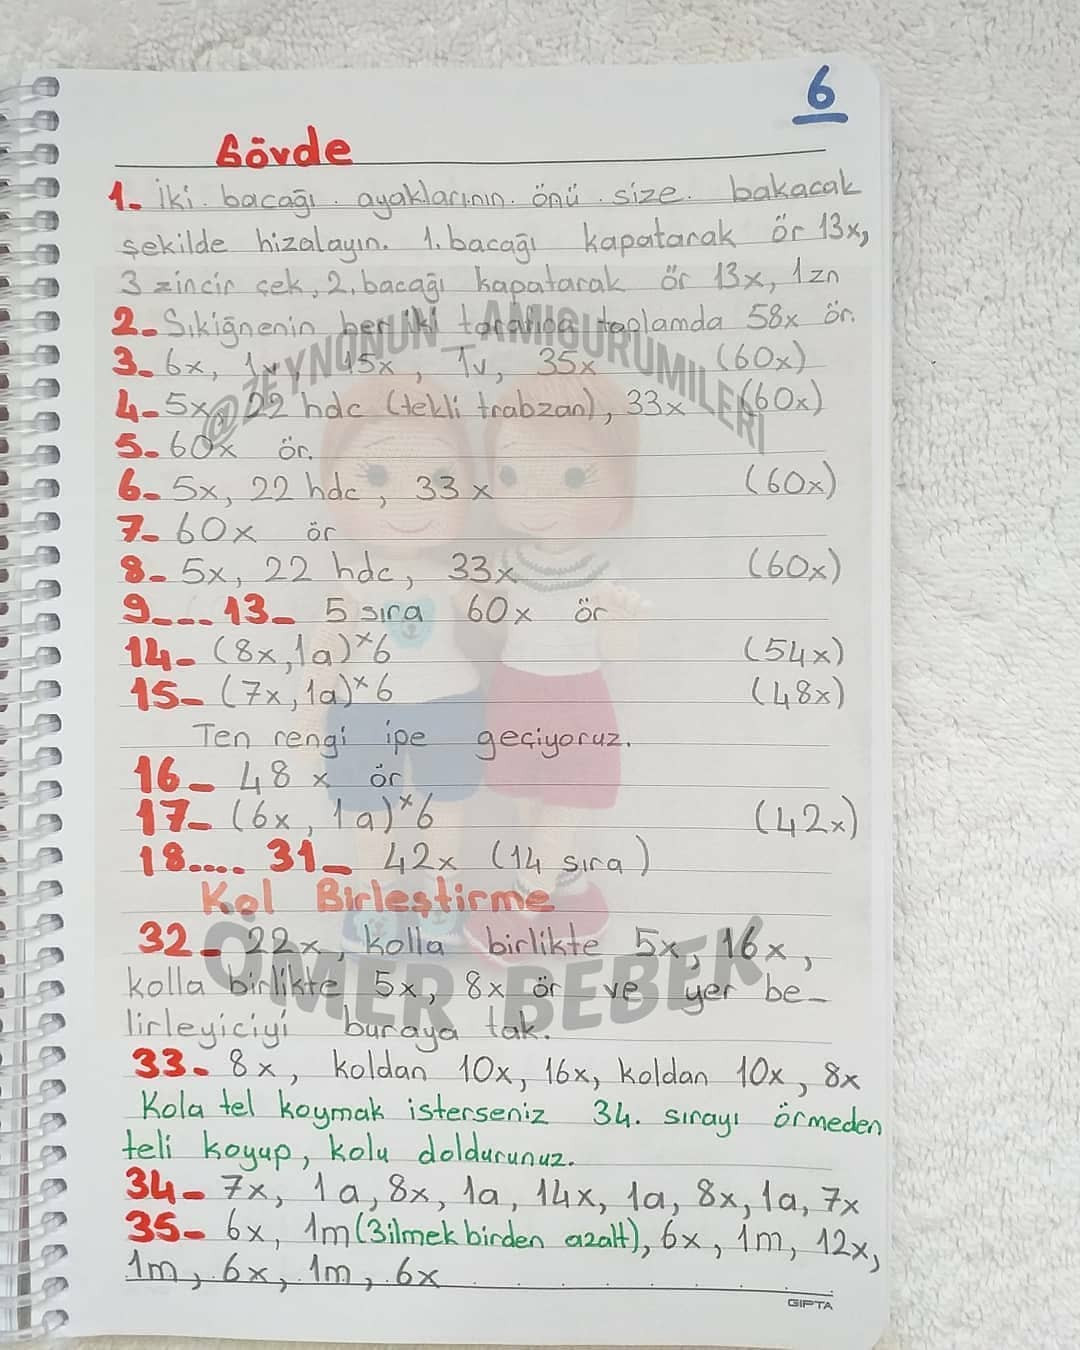 6
Gövde
1- İki bacağı ayaklarının önü size bakacak
şekilde hizalayın. 1. bacağı kapatarak ör 13x,
3 zincir çek, 2. bacağı kapatarak ör 13x, 1zn
2- Sıkiğnenin her iki tarafıda toplamda 58x ör.
3- 6x, 1v, 15x, 1v, 35x (60x)
4- 5x, 22 hdc (tekli trabzan), 33x (60x)
5- 60x ör.
6- 5x, 22 hdc, 33x (60x)
7- 60x ör
8- 5x, 22 hdc, 33x (60x)
9---- 13- 5 sıra 60x ör
14- (8x,1a)*6 (54x)
15- (7x,1a)*6 (48x)
Ten rengi ipe geçiyoruz.
16- 48x ör
17- (6x, 1a)*6 (42x)
18.... 31- 42x (14 sıra)
Kol Birleştirme
32- 22x, kolla birlikte 5x, 16x,
kolla birlikte 5x, 8x ör ve yer be-
lirleyiciyi buraya tak.
33- 8x, koldan 10x, 16x, koldan 10x, 8x
Kola tel koymak isterseniz 34. sırayı örmeden
teli koyup, kolu doldurunuz.
34- 7x, 1a, 8x, 1a, 14x, 1a, 8x, 1a, 7x
35- 6x, 1m (3ilmek birden azalt), 6x, 1m, 12x,
1m, 6x, 1m, 6x
GIPTA
@ZEYNONUN_AMIGURUMILERI
ÖMER BEBEK